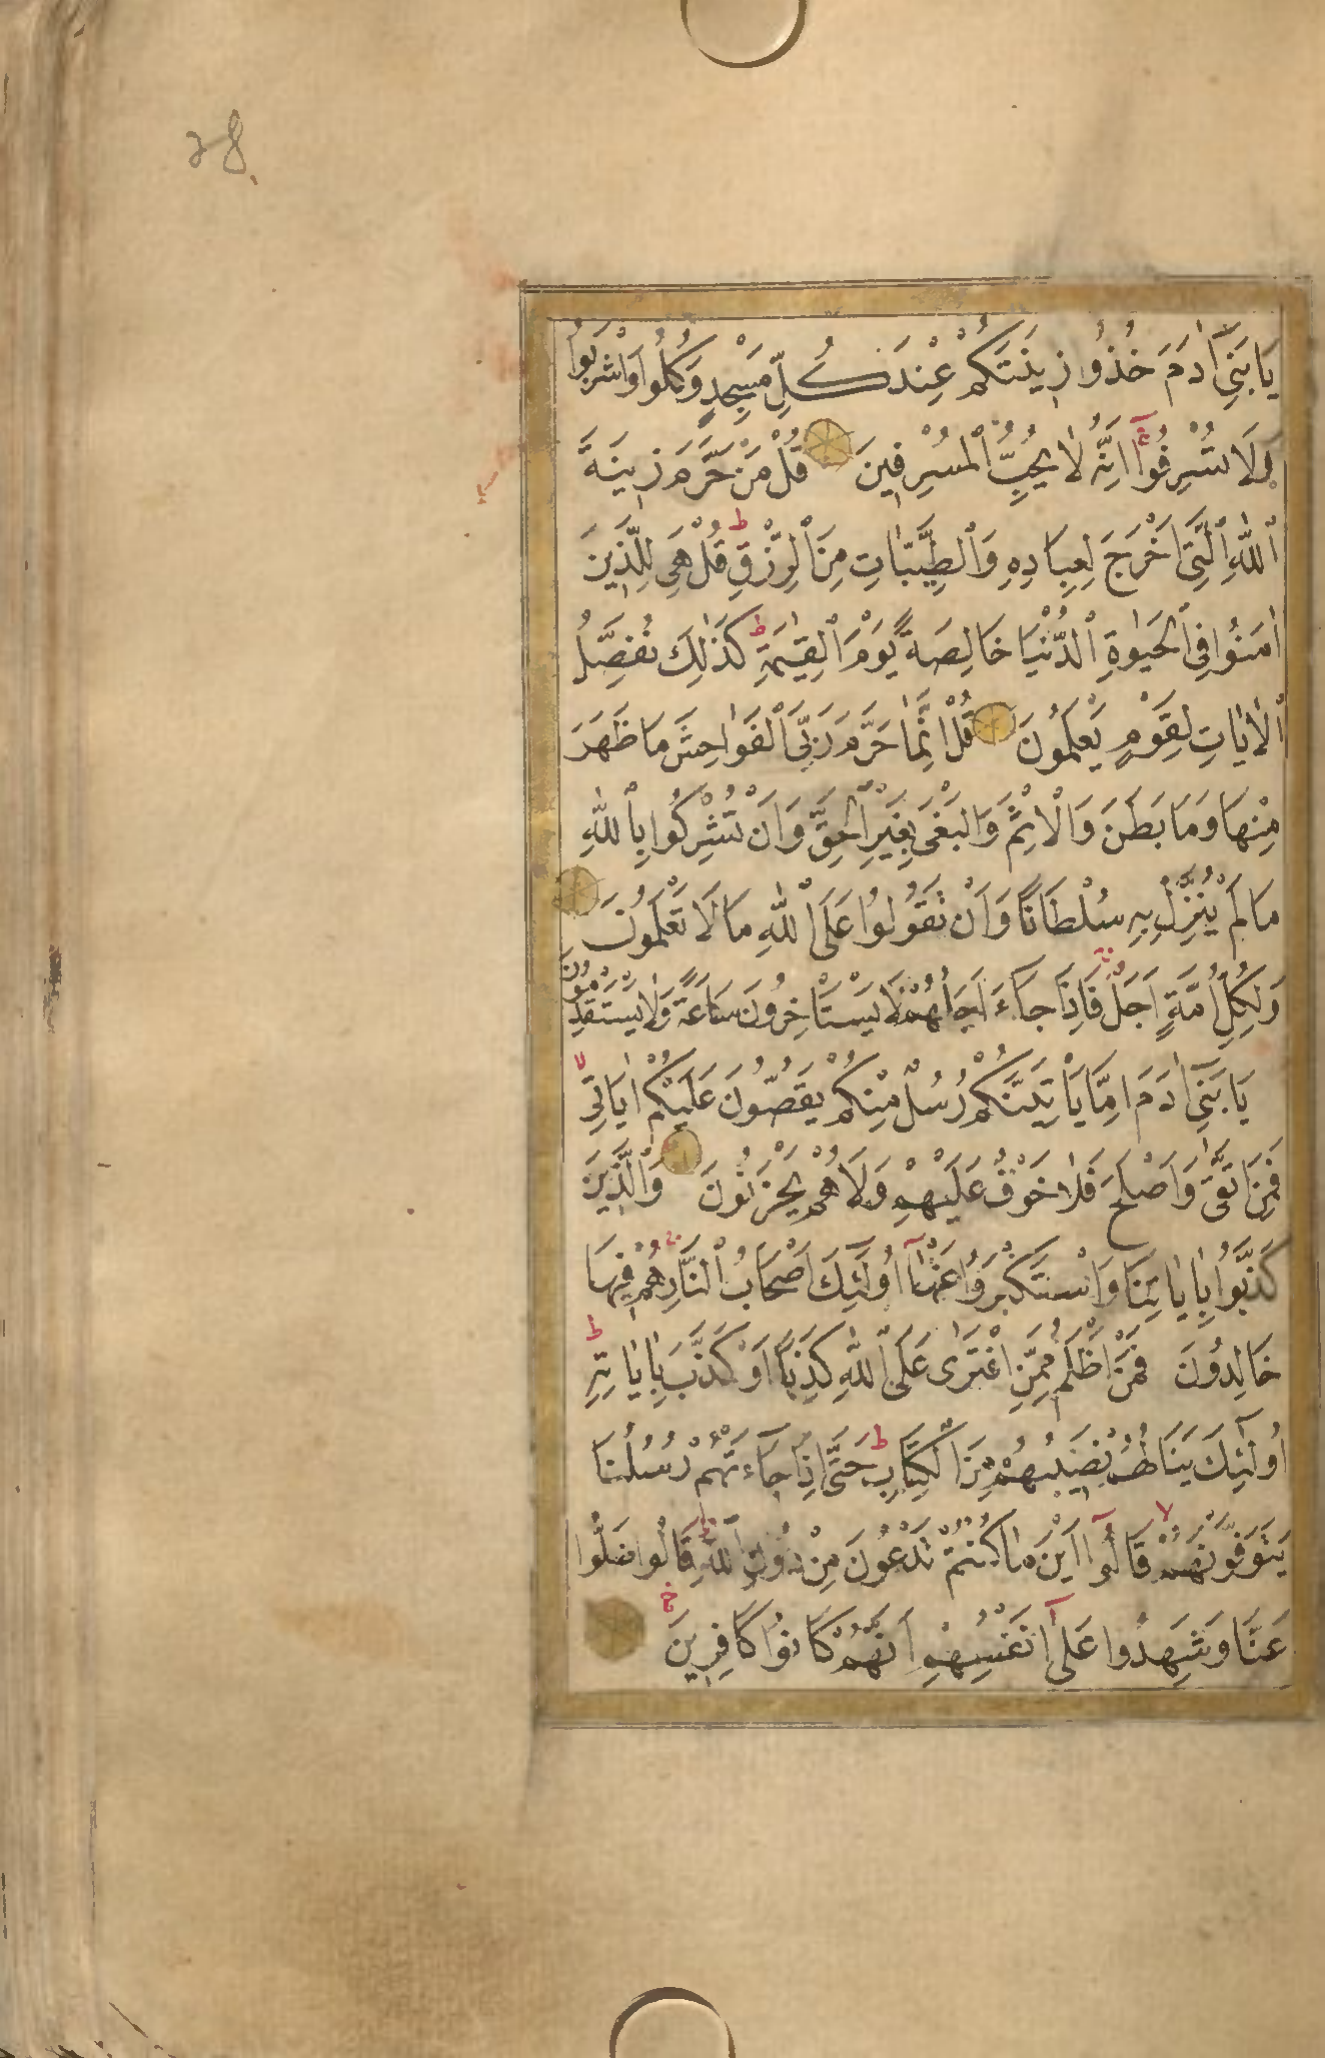 28
يَا بَنِىٓ اٰدَمَ خُذُوا زِينَتَكُمْ عِنْدَ كُلِّ مَسْجِدٍ وَكُلُوا وَاشْرَبُوا
وَلَا تُسْرِفُوٓا اِنَّهُ لَا يُحِبُّ الْمُسْرِفِينَ قُلْ مَنْ حَرَّمَ زِينَةَ
ٱللّٰهِ ٱلَّتِىٓ اَخْرَجَ لِعِبَادِهِ وَٱلطَّيِّبَاتِ مِنَ ٱلرِّزْقِ ط قُلْ هِىَ لِلَّذِينَ
اٰمَنُوا فِى ٱلْحَيٰوةِ ٱلدُّنْيَا خَالِصَةً يَوْمَ ٱلْقِيٰمَةِ ط كَذٰلِكَ نُفَصِّلُ
ٱلْاٰيَاتِ لِقَوْمٍ يَعْلَمُونَ قُلْ اِنَّمَا حَرَّمَ رَبِّىَ ٱلْفَوَاحِشَ مَا ظَهَرَ
مِنْهَا وَمَا بَطَنَ وَالْاِثْمَ وَالْبَغْىَ بِغَيْرِ ٱلْحَقِّ وَاَنْ تُشْرِكُوا بِٱللّٰهِ
مَا لَمْ يُنَزِّلْ بِهِ سُلْطَانًا وَاَنْ تَقُولُوا عَلَى ٱللّٰهِ مَا لَا تَعْلَمُونَ
وَلِكُلِّ اُمَّةٍ اَجَلٌ ج فَاِذَا جَآءَ اَجَلُهُمْ لَا يَسْتَاْخِرُونَ سَاعَةً وَلَا يَسْتَقْدِمُونَ
يَا بَنِىٓ اٰدَمَ اِمَّا يَاْتِيَنَّكُمْ رُسُلٌ مِنْكُمْ يَقُصُّونَ عَلَيْكُمْ اٰيَاتِى لا
فَمَنِ اتَّقٰى وَاَصْلَحَ فَلَا خَوْفٌ عَلَيْهِمْ وَلَا هُمْ يَحْزَنُونَ وَٱلَّذِينَ
كَذَّبُوا بِاٰيَاتِنَا وَاسْتَكْبَرُوا عَنْهَآ اُولٰٓئِكَ اَصْحَابُ ٱلنَّارِ ج هُمْ فِيهَا
خَالِدُونَ فَمَنْ اَظْلَمُ مِمَّنِ افْتَرٰى عَلَى ٱللّٰهِ كَذِبًا اَوْ كَذَّبَ بِاٰيَاتِهِ ط
اُولٰٓئِكَ يَنَالُهُمْ نَصِيبُهُمْ مِنَ ٱلْكِتَابِ ط حَتّٰٓى اِذَا جَآءَتْهُمْ رُسُلُنَا
يَتَوَفَّوْنَهُمْ لا قَالُوٓا اَيْنَ مَا كُنْتُمْ تَدْعُونَ مِنْ دُونِ ٱللّٰهِ ط قَالُوا ضَلُّوا
عَنَّا وَشَهِدُوا عَلٰٓى اَنْفُسِهِمْ اَنَّهُمْ كَانُوا كَافِرِينَ